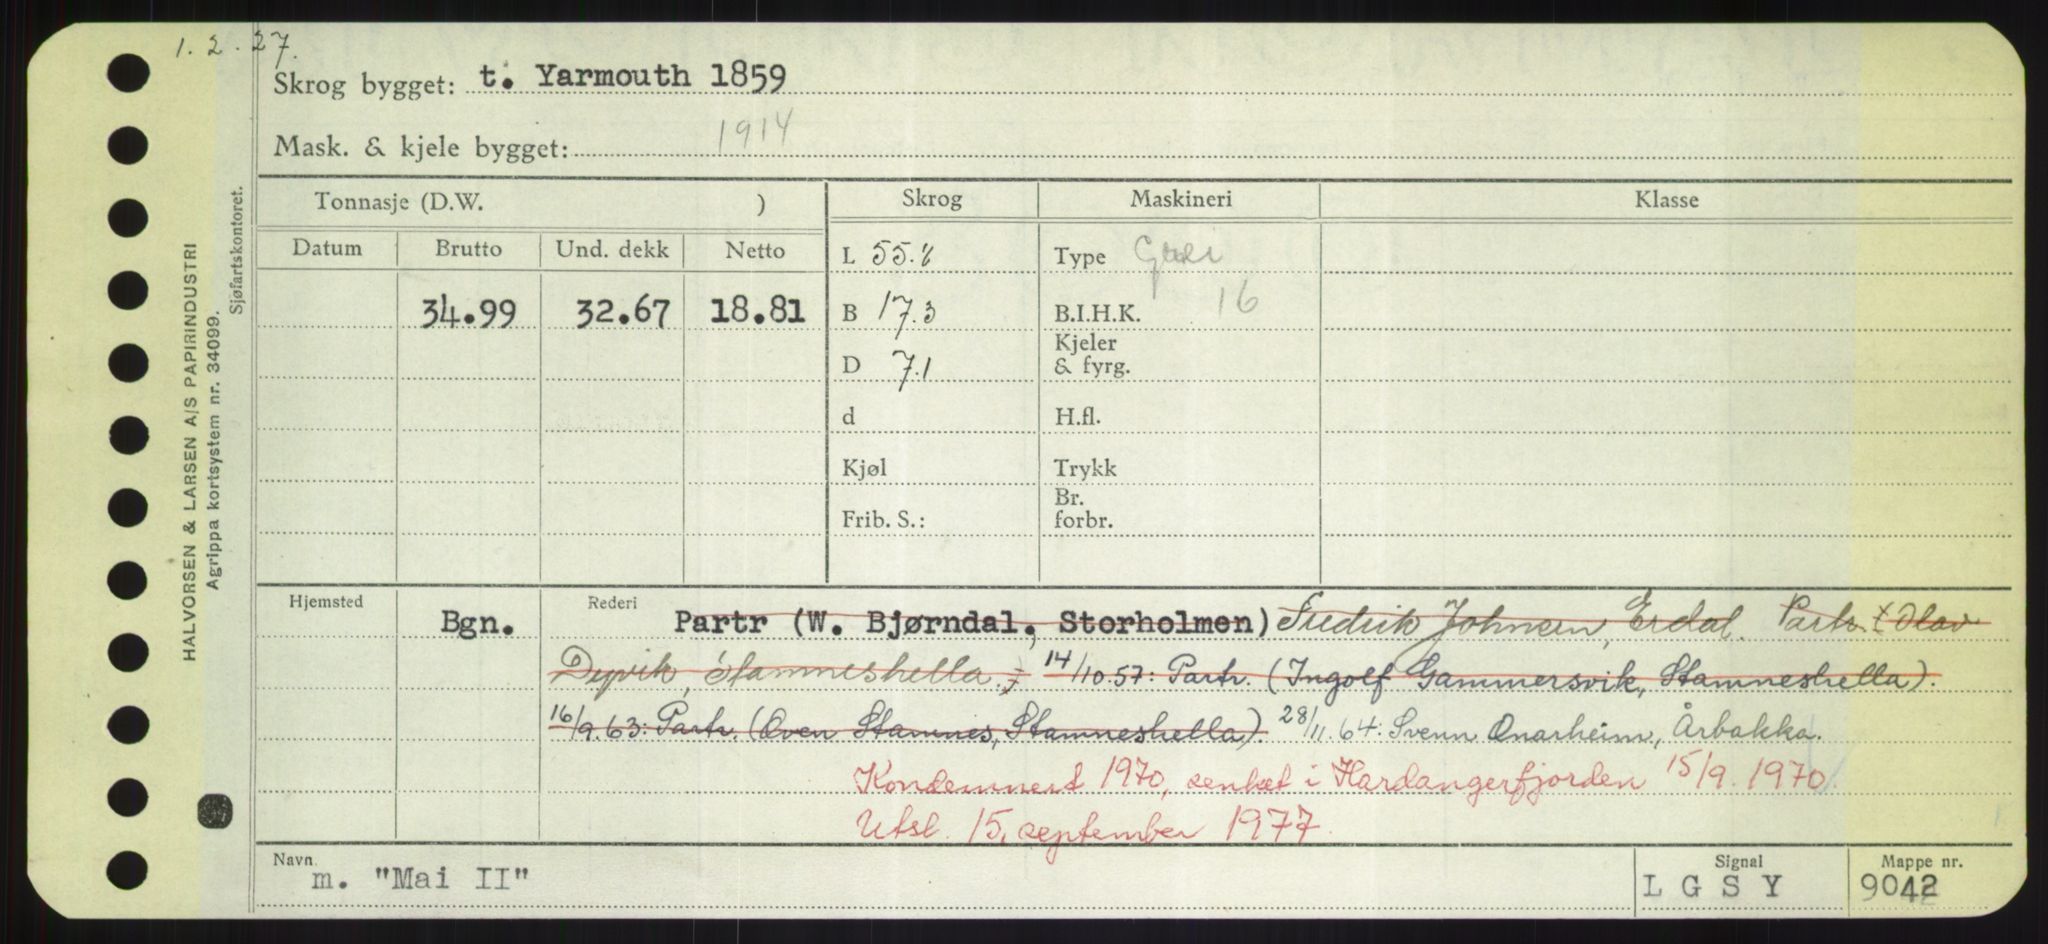 1.2.27.
Skrog bygget: t. Yarmouth 1859
Mask. & kjele bygget: 1914
HALVORSEN & LARSEN A/S PAPIRINDUSTRI
Agrippa kortsystem nr. 34099.
Sjøfartskontoret.
Tonnasje (D.W. ) Skrog Maskineri Klasse
Datum Brutto Und. dekk Netto L 55. Type
34.99 32.67 18.81 B 17.3 B.I.H.K. 16
Kjeler
D 7.1 & fyrg.
d H.fl.
Kjøl Trykk
Br.
Frib. S.: forbr.
Hjemsted Bgn. Rederi Partr (W. Bjørndal, Storholmen) Fredrik Johnsen, Erdal. Partr. Olav
Dyvik, Stamneshella. 14/10.57: Partr. (Ingolf Gammersvik, Stamneshella).
16/9.63: Partr. (Oven Stamnes, Stamneshella). 28/11.64: Svenn Onarheim, Årbakka.
Kondemnert 1970, senket i Hardangerfjorden 15/9.1970.
Utsl. 15. september 1977.
Navn m. "Mai II" Signal LGSY Mappe nr. 9042